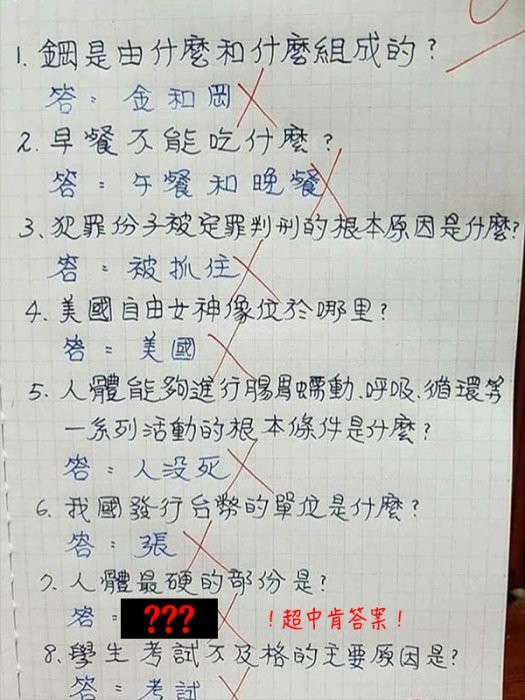 1. 鋼是由什麼和什麼組成的？
答：金和岡
2. 早餐不能吃什麼？
答：午餐和晚餐
3、犯罪份子被定罪判刑的根本原因是什麼？
答：被抓住
4、美國自由女神像位於哪里？
答：美國
5、人體能夠進行腸胃蠕動、呼吸、循環等
一系列活動的根本條件是什麼？
答：人沒死
6、我國發行台幣的單位是什麼？
答：張
7、人體最硬的部份是？
答：??? ！超中肯答案！
8、學生考試不及格的主要原因是？
答：考試